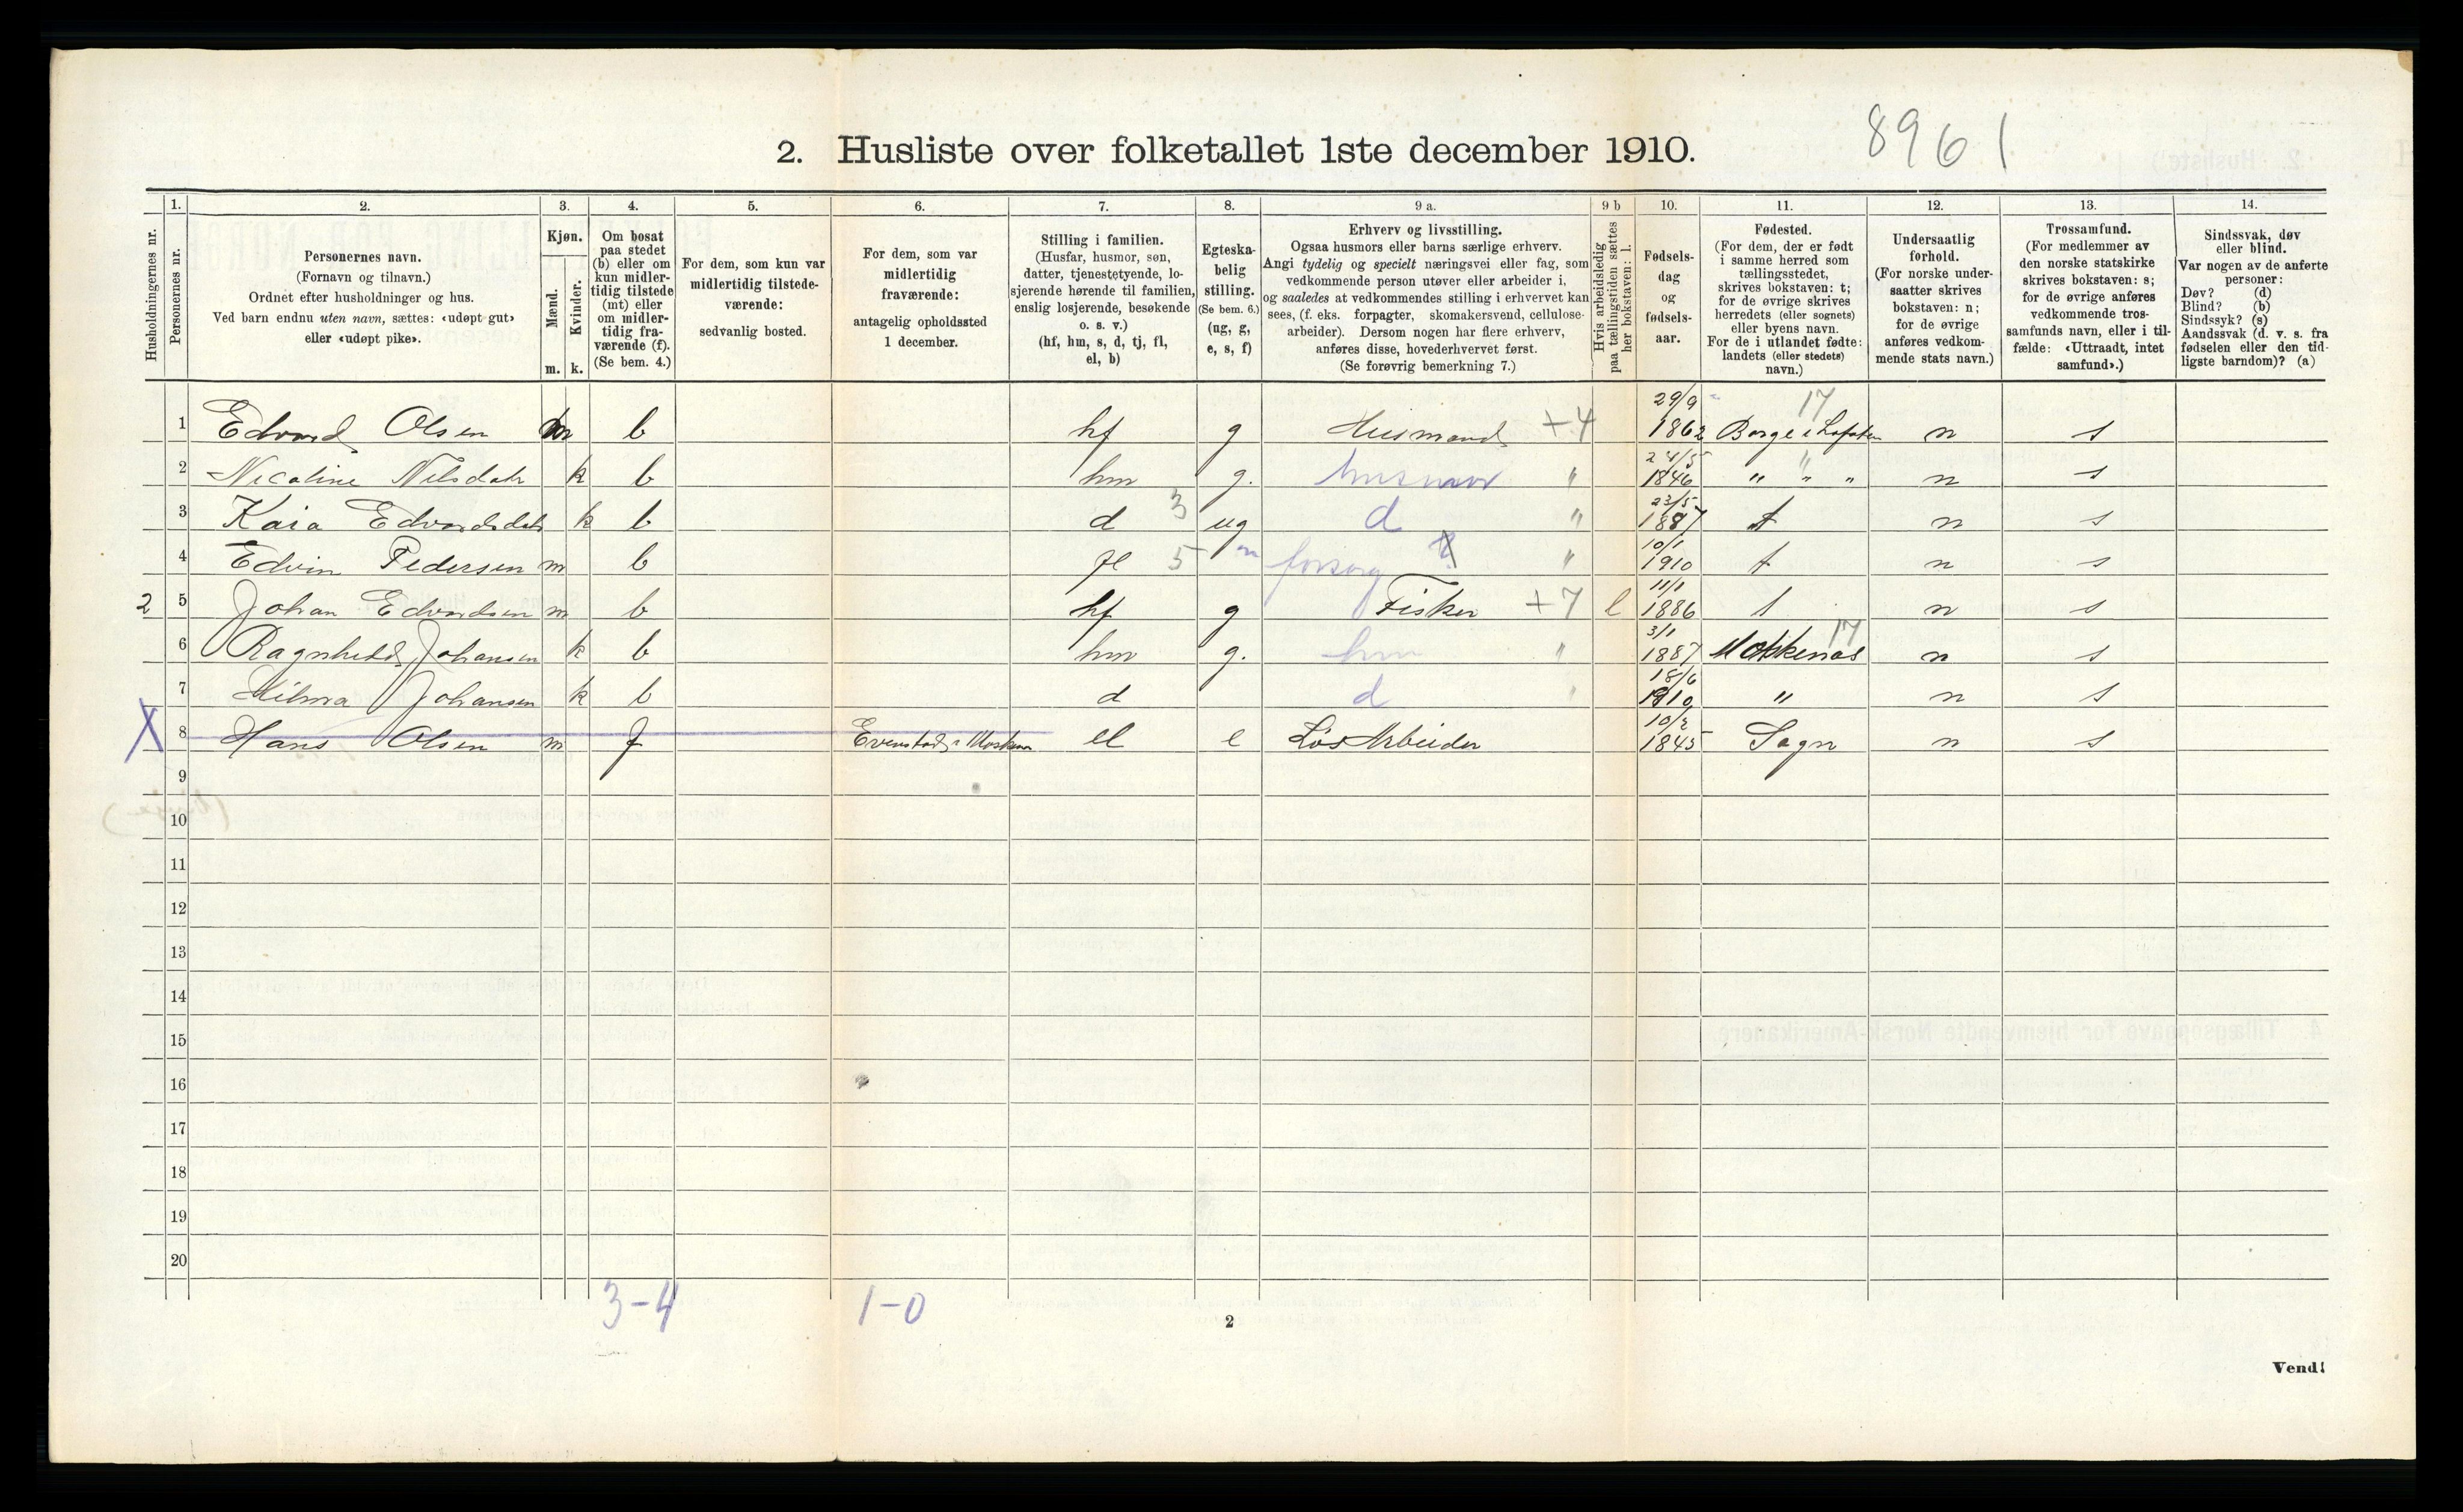 2. Husliste over folketallet 1ste december 1910.
8961
Husholdningernes nr.
1.
Personernes nr.
2.
Personernes navn.
(Fornavn og tilnavn.)
Ordnet efter husholdninger og hus.
Ved barn endnu uten navn, sættes: «udøpt gut»
eller «udøpt pike».
3.
Kjøn.
Mænd.
Kvinder.
m. k.
4.
Om bosat
paa stedet
(b) eller om
kun midler-
tidig tilstede
(mt) eller
om midler-
tidig fra-
værende (f).
(Se bem. 4.)
5.
For dem, som kun var
midlertidig tilstede-
værende:
sedvanlig bosted.
6.
For dem, som var
midlertidig
fraværende:
antagelig opholdssted
1 december.
7.
Stilling i familien.
(Husfar, husmor, søn,
datter, tjenestetyende, lo-
sjerende hørende til familien,
enslig losjerende, besøkende
o. s. v.)
(hf, hm, s, d, tj, fl,
el, b)
8.
Egteska-
belig
stilling.
(Se bem. 6.)
(ug, g,
e, s, f)
9 a.
Erhverv og livsstilling.
Ogsaa husmors eller barns særlige erhverv.
Angi tydelig og specielt næringsvei eller fag, som
vedkommende person utøver eller arbeider i,
og saaledes at vedkommendes stilling i erhvervet kan
sees, (f. eks. forpagter, skomakersvend, cellulose-
arbeider). Dersom nogen har flere erhverv,
anføres disse, hovederhvervet først.
(Se forøvrig bemerkning 7.)
9 b
Hvis arbeidsledig
paa tællingstiden sættes
her bokstaven: l.
10.
Fødsels-
dag
og
fødsels-
aar.
11.
Fødested.
(For dem, der er født
i samme herred som
tællingsstedet,
skrives bokstaven: t;
for de øvrige skrives
herredets (eller sognets)
eller byens navn.
For de i utlandet fødte:
landets (eller stedets)
navn.)
12.
Undersaatlig
forhold.
(For norske under-
saatter skrives
bokstaven: n;
for de øvrige
anføres vedkom-
mende stats navn.)
13.
Trossamfund.
(For medlemmer av
den norske statskirke
skrives bokstaven: s;
for de øvrige anføres
vedkommende tros-
samfunds navn, eller i til-
fælde: «Uttraadt, intet
samfund».)
14.
Sindssvak, døv
eller blind.
Var nogen av de anførte
personer:
Døv? (d)
Blind? (b)
Sindssyk? (s)
Aandssvak (d. v. s. fra
fødselen eller den tid-
ligste barndom)? (a)
1 Edvard Olsen m b hf g Husmand +4 29/9 1862 Borge i Lofoten 17 n s
2 Nicoline Nilsdatr k b hm g. husmor " 24/5 1846 " " " n s
3 Kaia Edvardsdatr k b d 3 ug d " 23/5 1887 t n s
4 Edvin Pedersen m b fl 5 forsorg " 10/1 1910 t n s
2 5 Johan Edvardsen m b hf g Fisker +7 l 11/1 1886 t n s
6 Ragnhild Johansen k b hm g. hm " 3/1 1887 Moskenæs 17 n s
7 Hilma Johansen k b d d " 18/6 1910 " n s
X 8 Hans Olsen m f Evenstad i Mosken el e Løs Arbeider 10/2 1845 Sogn n s
9
10
11
12
13
14
15
16
17
18
19
20
3-4 1-0
2
Vend!